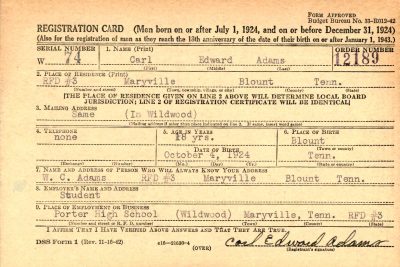 FORM APPROVED
Budget Bureau No. 33-R012-42
REGISTRATION CARD (Men born on or after July 1, 1924, and on or before December 31, 1924)
(Also for the registration of men as they reach the 18th anniversary of the date of their birth on or after January 1, 1943.)
SERIAL NUMBER 1. NAME (Print) ORDER NUMBER
W 74 Carl Edward Adams 12189
(First) (Middle) (Last)
2. PLACE OF RESIDENCE (Print)
RFD #3 Maryville Blount Tenn.
(Number and street) (Town, township, village, or city) (County) (State)
[THE PLACE OF RESIDENCE GIVEN ON LINE 2 ABOVE WILL DETERMINE LOCAL BOARD
JURISDICTION; LINE 2 OF REGISTRATION CERTIFICATE WILL BE IDENTICAL]
3. MAILING ADDRESS
Same (In Wildwood)
(Mailing address if other than place indicated on line 2. If same, insert word same)
4. TELEPHONE 5. AGE IN YEARS 6. PLACE OF BIRTH
none 18 yrs. Blount
DATE OF BIRTH (Town or county)
October 4, 1924 Tenn.
(Exchange) (Number) (Mo.) (Day) (Yr.) (State or country)
7. NAME AND ADDRESS OF PERSON WHO WILL ALWAYS KNOW YOUR ADDRESS
W. C. Adams RFD #3 Maryville Blount Tenn.
8. EMPLOYER'S NAME AND ADDRESS
Student
9. PLACE OF EMPLOYMENT OR BUSINESS
Porter High School (Wildwood) Maryville, Tenn. RFD #3
(Number and street or R. F. D. number) (Town) (County) (State)
I AFFIRM THAT I HAVE VERIFIED ABOVE ANSWERS AND THAT THEY ARE TRUE.
DSS Form 1 (Rev. 11-16-42) (OVER) Carl Edward Adams
(Registrant's signature)